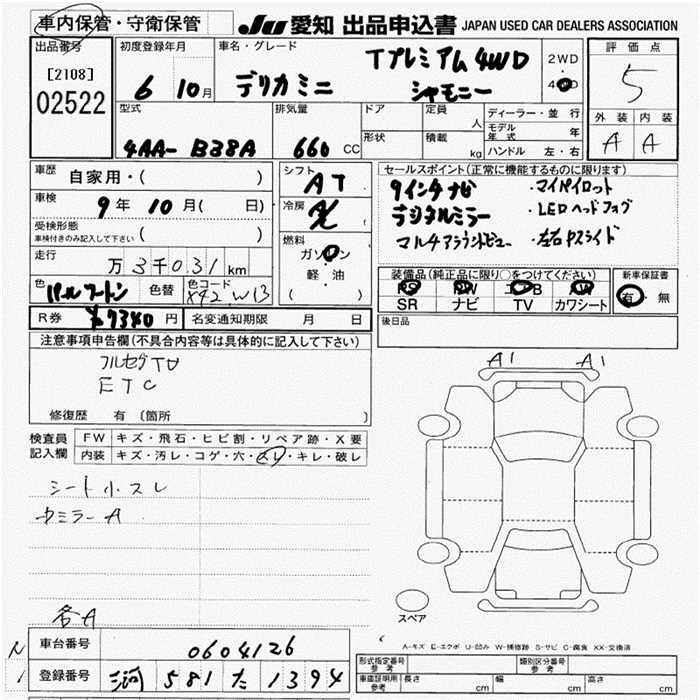 車内保管・守衛保管
JU 愛知 出品申込書 JAPAN USED CAR DEALERS ASSOCIATION
出品番号
[2108]
02522
初度登録年月
6 10月
車名・グレード
デリカミニ
Tプレミアム4WD
シャモニー
2WD
4WD
評価点
5
外装 内装
A A
型式
4AA- B38A
排気量
660 CC
ドア
形状
定員 人
積載 kg
ディーラー・並行
モデル年式 年
ハンドル 左・右
車歴 自家用・( )
車検 9年 10月( 日)
受検形態
車検付きのみ記入して下さい ( )
走行 万3千031km
色 パールツートン 色替 色コード X42 W13
R券 ¥7340円 名変通知期限 月 日
シフト AT
冷房
燃料
ガソリン
軽・油
( )
セールスポイント(正常に機能するものに限ります)
9インチナビ ・マイパイロット
デジタルミラー ・LEDヘッドフォグ
マルチアラウンドビュー ・左右Pスライド
装備品(純正品に限り○をつけてください) 新車保証書
PS PW エアB AW 有・無
SR ナビ TV カワシート
後日品
注意事項申告欄(不具合内容等は具体的に記入して下さい)
フルセグTV
ETC
修復歴 有 〔箇所 〕
検査員記入欄
FW キズ・飛石・ヒビ割・リペア跡・X要
内装 キズ・汚レ・コゲ・穴・スレ・キレ・破レ
シート小スレ
カミラーA
各A
A1 A1
スペア
A-キズ E-エクボ U-凹み W-補修跡 S-サビ C-腐食 XX-交換済
車台番号 0604126
登録番号 三河 581 た 1394
型式指定番号 参考 類別区分番号 参考
車庫証明用 参考 長さ cm 幅 cm 高さ cm